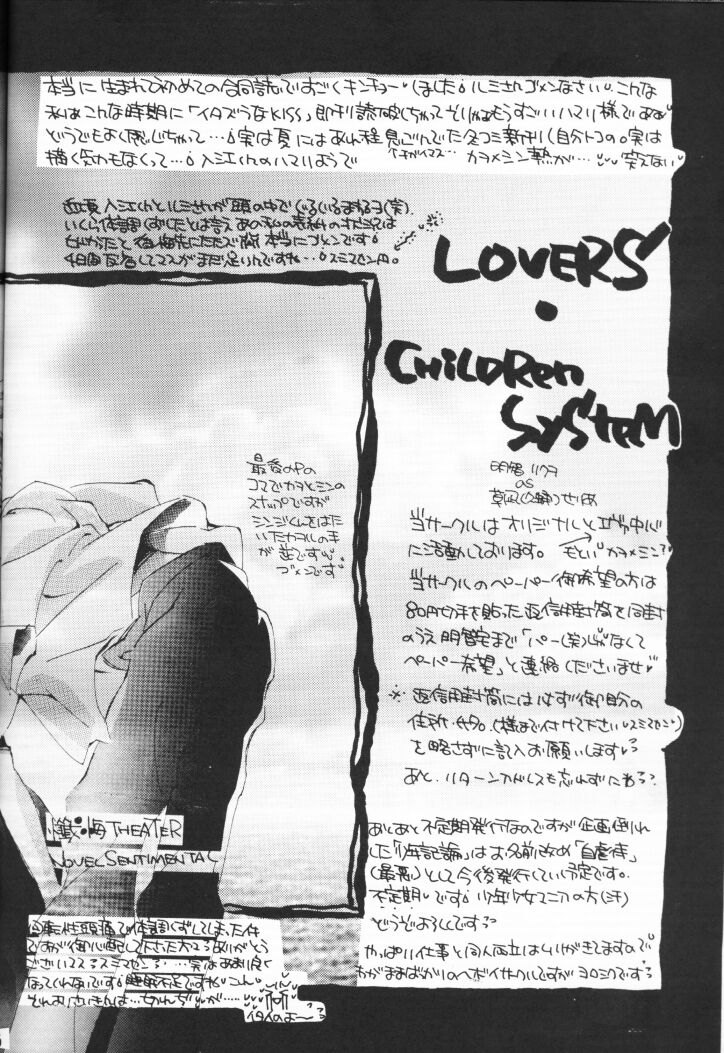 本当に生まれて初めての合同誌ですごくキンチョーしました ルミさんゴメンなさい こんな
私はこんな時期に「イタズラなKISS」即刊読破しちゃって もうすごいハマリ様で
どうでもよく感じちゃって…実は夏にはあれ程息ごんでた冬コミ新刊(自分トコの)実は
描く気力もなくって…入江くんのハマりようで カヲ×シン熱が… 笑えない
近頃入江くんとルミさんが頭の中でぐるぐるまわるヨ(笑)
いくら体調くずしたとは言えあの私の表紙の
後悔先にたたず 本当にゴメンです
4日間反省してマスがまだ足りんですね…スミマセン
LOVERS
・
CHiLDRen
SySteM
最後のPの
コマでカヲとシンの
スナップですが
シンジくんをはた
いたカヲルの手
が逆です
ゴメンです
明智
as
当サークルはオリジナルとエヴァ中心
に活動しております。もといカヲ×シン?
当サークルのペーパー御希望の方は
80円切手を貼った返信用封筒を同封
のうえ明智宅まで「パー(笑)じゃなくて
ペーパー希望」と連絡くださいませ
※返信用封筒には必ず御自分の
住所・氏名。(様まで付けて下さいスミマセン)
を略さずに記入お願いします
あと、リターンアドレスも忘れずにね?
THEATER
NOVEL SENTIMENTAL
あとあと不定期発行なのですが企画倒れ
した「少年記論」はお名前改め「自虐侍」
(最悪)として今後発行していく予定です。
不定期です 少年少女マニアの方(汗)
どうぞよろしくです
やっぱり仕事と同人両立はムリがきてますので
わがままばかりのヘボイサークルですがヨロシクです
性頭痛で体調くずしてしまった件
ですが御心配して下さった方々ありがとう
ございマス スミマセン …実はあまり良く
なってくれないです 睡眠不足ですね
それよりさいきんは…
イタイのよ〜